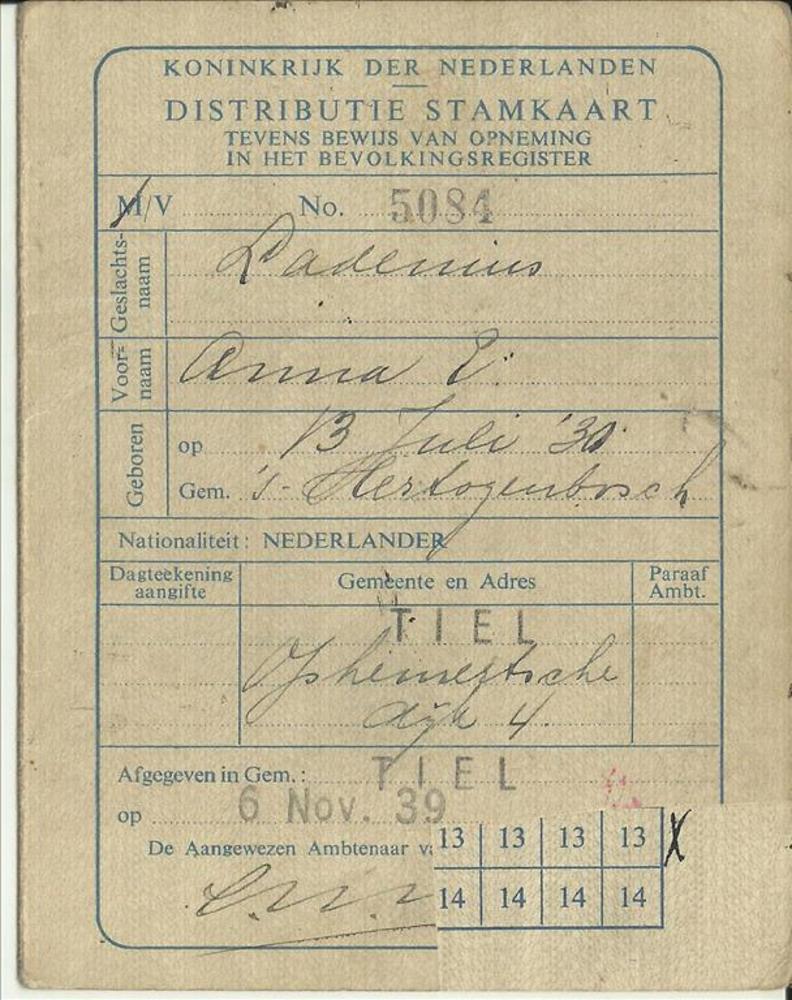 KONINKRIJK DER NEDERLANDEN
DISTRIBUTIE STAMKAART
TEVENS BEWIJS VAN OPNEMING
IN HET BEVOLKINGSREGISTER
M/V No. 5084
Geslachts-
naam
Ladenius
Voor-
naam
Anna E.
Geboren
op 13 Juli '30
Gem. 's-Hertogenbosch
Nationaliteit: NEDERLANDER
Dagteekening
aangifte
Gemeente en Adres
Paraaf
Ambt.
TIEL
Ophemertsche
dijk 4.
Afgegeven in Gem.: TIEL
op 6 Nov. 39
De Aangewezen Ambtenaar
13 13 13 13 X
14 14 14 14